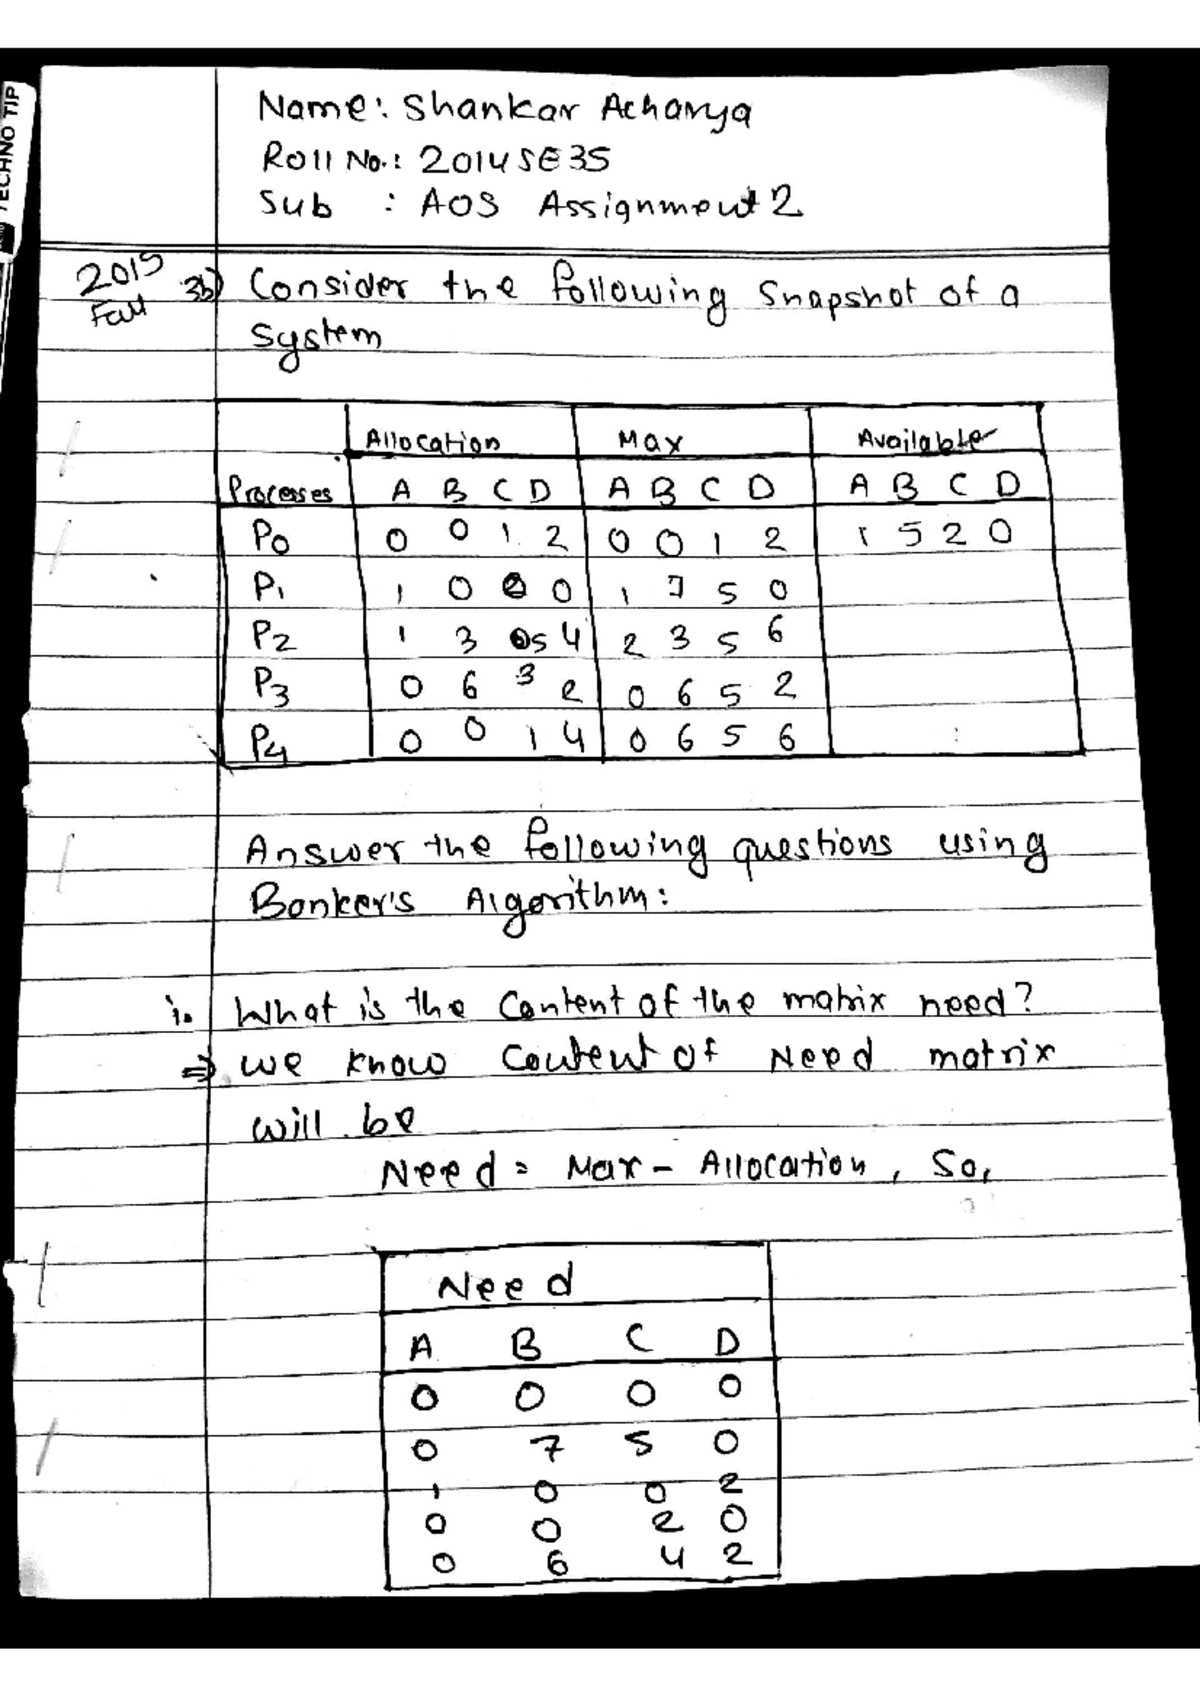 TECHNO TIP
Name: Shankar Acharya
Roll No.: 2014SE35
Sub : AOS Assignment 2
2015 Fall 3b) Consider the following Snapshot of a
System
Allocation Max Available
Processes A B C D A B C D A B C D
P0 0 0 1 2 0 0 1 2 1 5 2 0
P1 1 0 0 0 1 7 5 0
P2 1 3 5 4 2 3 5 6
P3 0 6 3 2 0 6 5 2
P4 0 0 1 4 0 6 5 6
Answer the following questions using
Banker's Algorithm:
i. What is the Content of the matrix need?
⇒ we know Content of Need matrix
will be
Need = Max - Allocation, So,
Need
A B C D
0 0 0 0
0 7 5 0
1 0 0 2
0 0 2 0
0 6 4 2